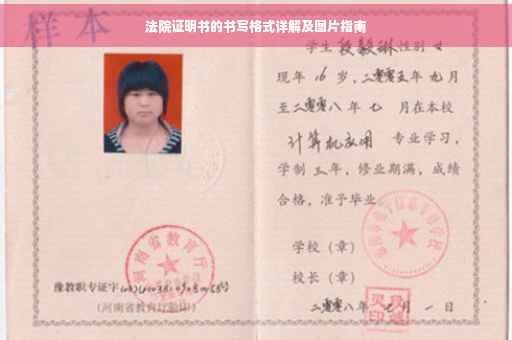 法院证明书的书写格式详解及图片指南
样本
学生 段毅琳 性别 女
现年 16 岁,二零零五年 九月
至二零零八年 七 月在本校
计算机应用 专业学习,
学制 三 年,修业期满,成绩
合格,准予毕业
学校(章)
校长(章)
二零零八年 七 月 一 日
河南省教育厅
豫教职专证字
(河南省教育厅验印)